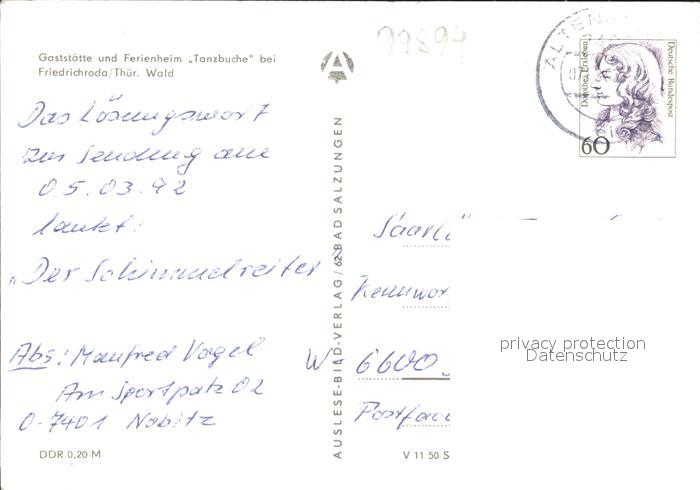 99894
Gaststätte und Ferienheim „Tanzbuche" bei
Friedrichroda/Thür. Wald
ALTEN
Dorothea Erxleben
Deutsche Bundespost
60
Das Lösungswort
zur Sendung am
05.03.92
lautet:
„Der Schimmelreiter"
Abs: Manfred Vogel
Am Sportplatz 02
O-7401 Nobitz
DDR 0,20 M
AUSLESE-BILD-VERLAG/62 BAD SALZUNGEN
Saarl
Kennwor
W 6600
Postfac
V 11 50 S
privacy protection
Datenschutz